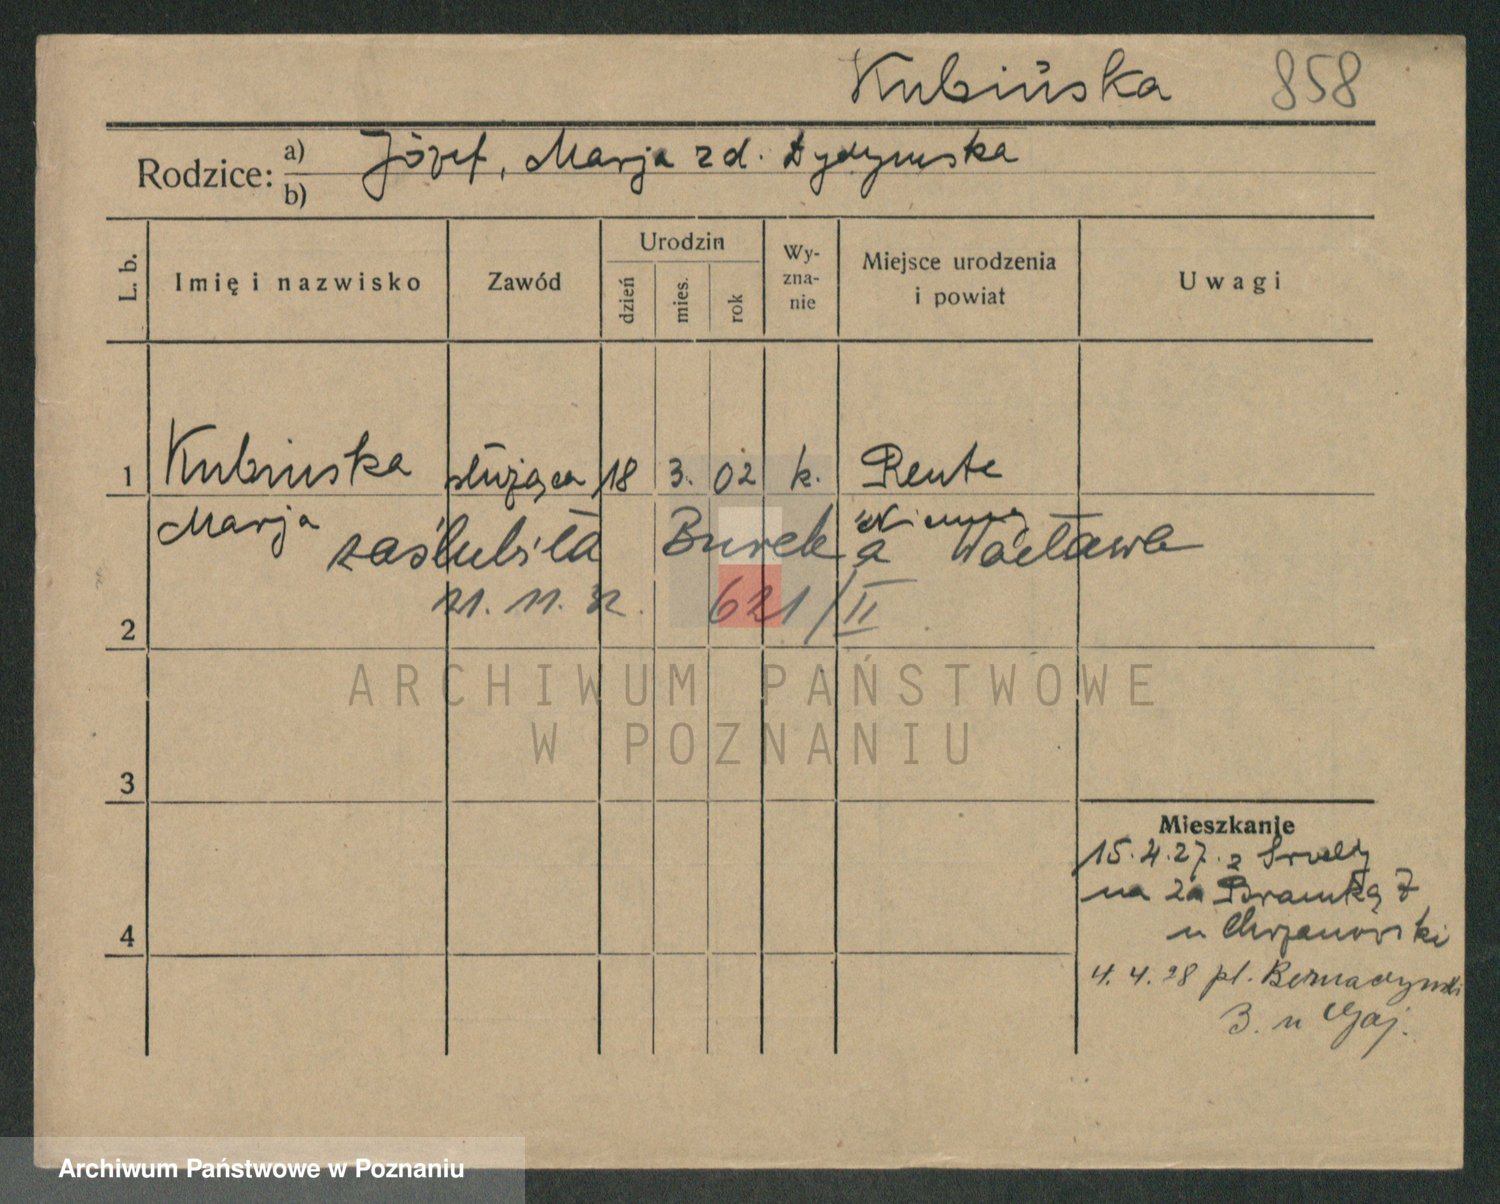 Kubińska 858
Rodzice: a) Józef, Marja zd. Dydyńska
b)
L. b. Imię i nazwisko Zawód Urodzin dzień mies. rok Wy-zna-nie Miejsce urodzenia i powiat Uwagi
1 Kubinska służąca 18 3. 02 k. Rente
Marja Niemcy
zaślubiła Burek a Wacława
21. 11. 32. 621/II
2
ARCHIWUM PAŃSTWOWE
W POZNANIU
3
Mieszkanie
15.4.27. z Środy
na Za Bramką 7
4
u Chrzanowski
4.4.28 pl. Bernadyński
3. u Gaj.
Archiwum Państwowe w Poznaniu